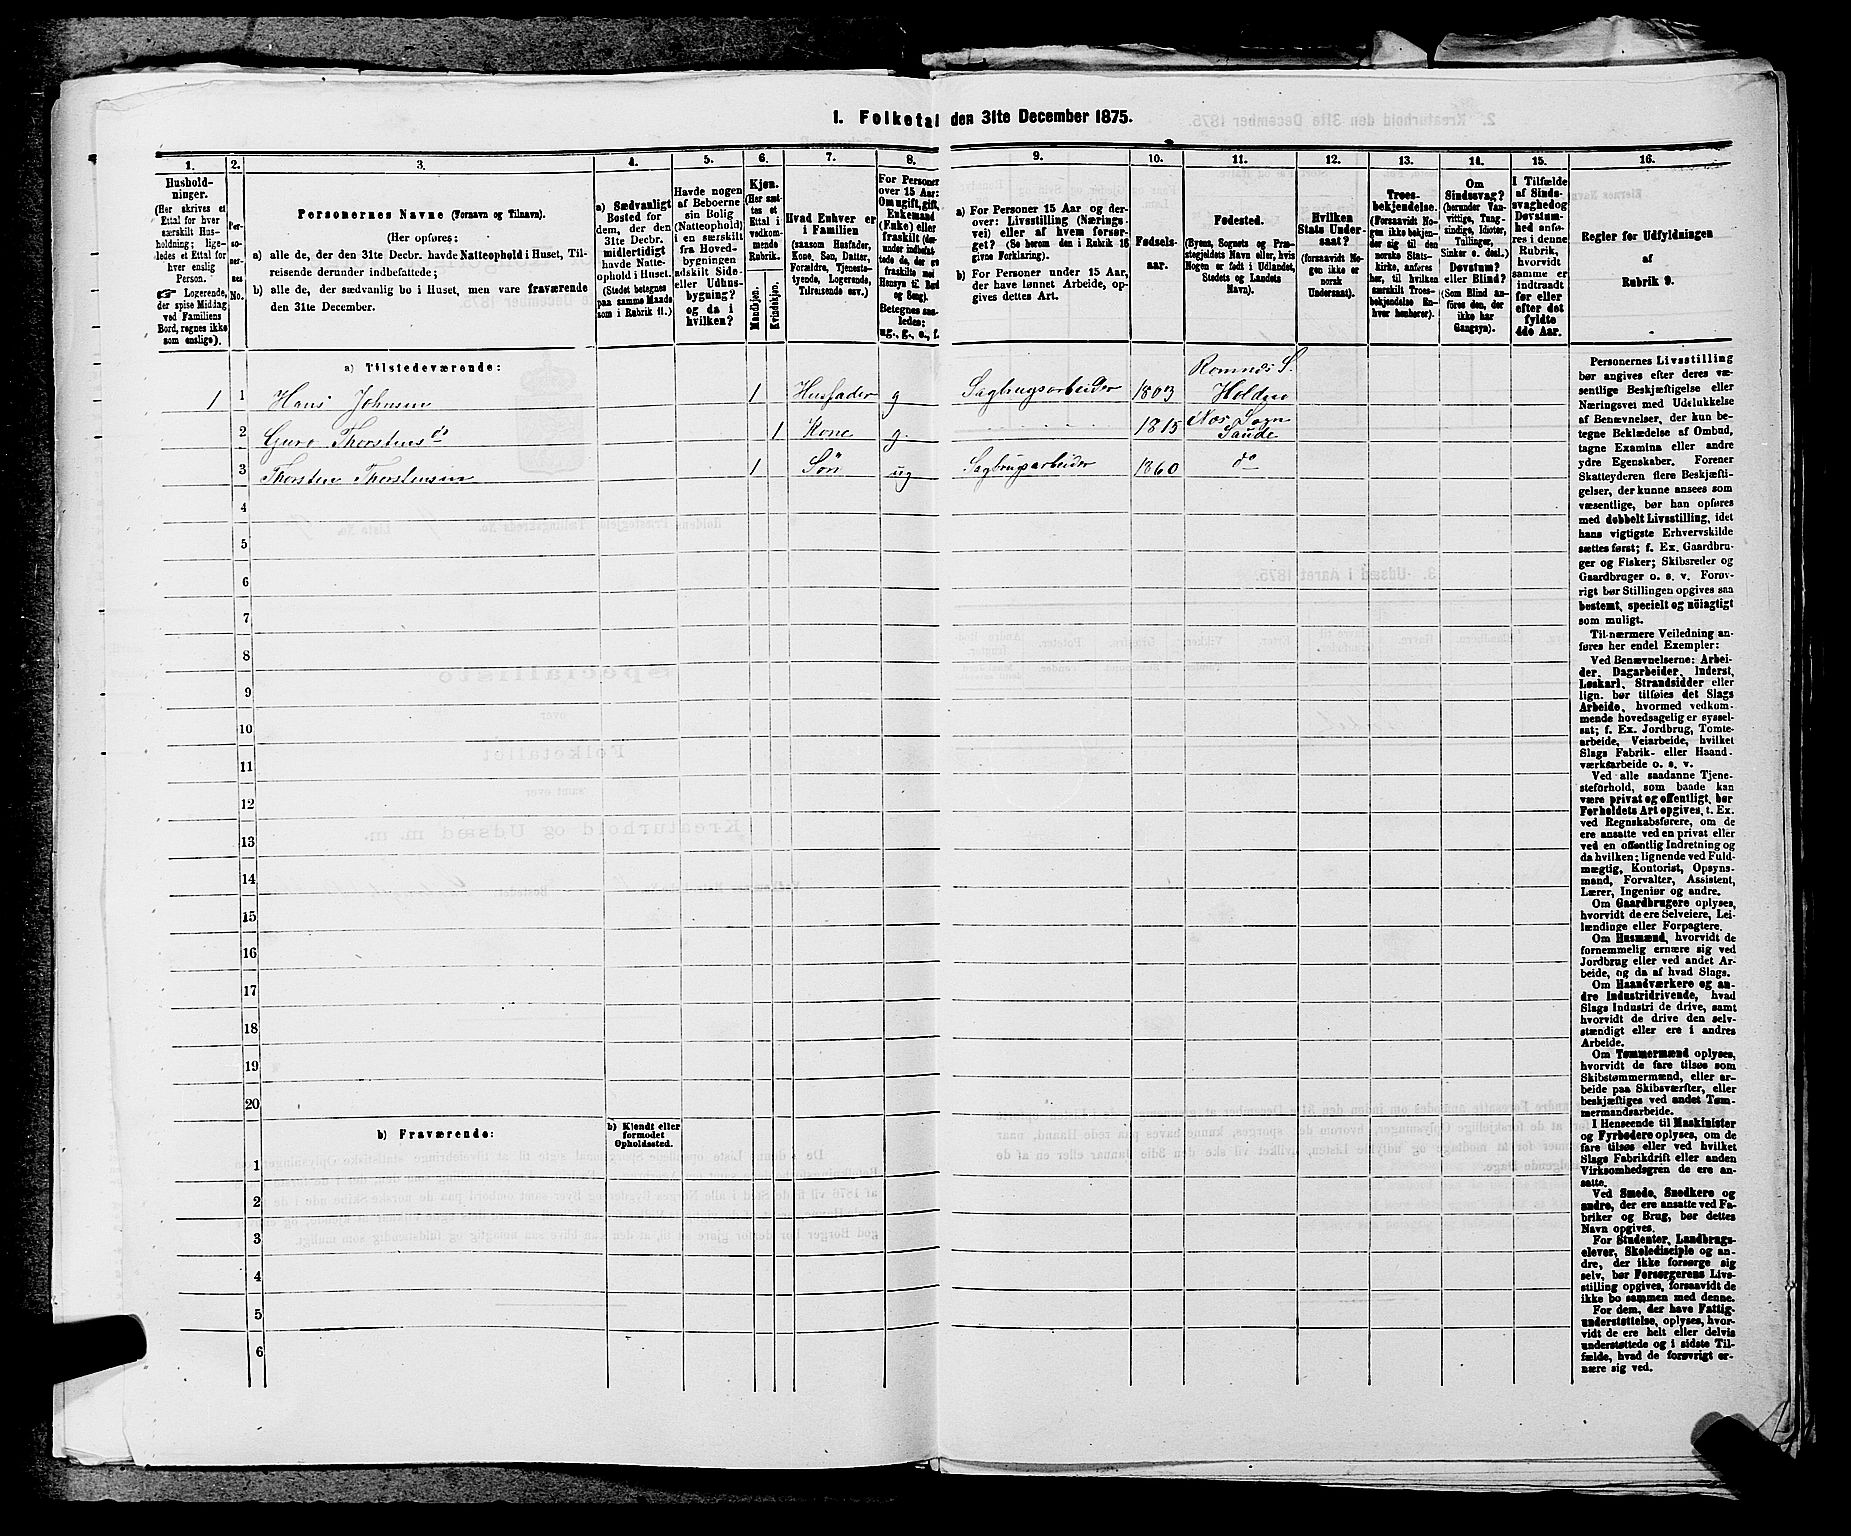 1. Folketal den 31te December 1875.
1. 2. 3. 4. 5. 6. 7. 8. 9. 10. 11. 12. 13. 14. 15. 16.
Hushold-
ninger.
(Her skrives et
Ettal for hver
særskilt Hus-
holdning; lige-
ledes et Ettal for
hver enslig
Person.
Logerende,
der spise Middag
ved Familiens
Bord, regnes ikke
som enslige).
Per-
so-
ner-
nes
No.
Personernes Navne (Fornavn og Tilnavn).
(Her opføres:
a) alle de, der den 31te Decbr. havde Natteophold i Huset, Til-
reisende derunder indbefattede;
b) alle de, der sædvanlig bo i Huset, men vare fraværende
den 31te December.
a) Sædvanligt
Bosted for
dem, der den
31te Decbr.
midlertidigt
havde Natte-
ophold i Huset.
(Stedet betegnes
paa samme Maade
som i Rubrik 11.)
Havde nogen
af Beboerne
sin Bolig
(Natteophold)
i en særskilt
fra Hoved-
bygningen
adskilt Side-
eller Udhus-
bygning?
og da i
hvilken?
Kjøn.
(Her sæt-
tes et
Ettal i
vedkom-
mende
Rubrik.
Mandkjøn.
Kvindekjøn.
Hvad Enhver er
i Familien
(saasom Husfader,
Kone, Søn, Datter,
Forældre, Tjeneste-
tyende, Logerende,
Tilreisende osv.)
For Personer
over 15 Aar:
Om ugift, gift,
Enkemand
(Enke) eller
fraskilt (der-
under indbefat-
tede de, der ere
fraskilte med
Hensyn til Bord
og Seng).
Betegnes saa-
ledes:
ug., g., e., f.
a) For Personer 15 Aar og der-
over: Livsstilling (Nærings-
vei) eller af hvem forsør-
get? (Se herom den i Rubrik 16
givne Forklaring).
b) For Personer under 15 Aar,
der have lønnet Arbeide, op-
gives dettes Art.
Fødsels-
aar.
Fødested.
(Byens, Sognets og Præ-
stegjeldets Navn eller, hvis
Nogen er født i Udlandet,
Stedets og Landets
Navn).
Hvilken
Stats Under-
saat?
(forsaavidt No-
gen ikke er
norsk
Undersaat).
Troes-
bekjendelse.
(Forsaavidt No-
gen ikke bekjen-
der sig til den
norske Stats-
kirke, anføres
her, til hvilken
særskilt Troes-
bekjendelse En-
hver henhører).
Om
Sindssvag?
(herunder Van-
vittige, Tung-
sindige, Idioter,
Tullinger,
Sinker o. desl.)
Døvstum?
eller Blind?
(Som Blind an-
føres den, der
ikke har
Gangsyn).
I Tilfælde
af Sinds-
svaghed og
Døvstum-
hed anfø-
res i denne
Rubrik,
hvorvidt
samme er
indtraadt
før eller
efter det
fyldte
4de Aar.
Regler for Udfyldningen
af
Rubrik 9.
a) Tilstedeværende:
1 1 Hans Johnsen 1 Husfader g Sagbrugsarbeider 1803 Romnæs S. Holden
2 Guro Thorstensd 1 Kone g. 1815 Næs Sogn Saude
3 Thorsten Thorstensen 1 Søn ug Sagbrugsarbeider 1860 do
4
5
6
7
8
9
10
11
12
13
14
15
16
17
18
19
20
b) Fraværende:
b) Kjendt eller
formodet
Opholdssted.
1
2
3
4
5
6
Personernes Livsstilling
bør angives efter deres væ-
sentlige Beskjæftigelse eller
Næringsvei med Udelukkelse
af Benævnelser, der kun be-
tegne Beklædelse af Ombud,
tagne Examina eller andre
ydre Egenskaber. Forener
Skatteyderen flere Beskjæfti-
gelser, der kunne ansees som
væsentlige, bør han opføres
med dobbelt Livsstilling, idet
hans vigtigste Erhvervskilde
sættes først; f. Ex. Gaardbru-
ger og Fisker; Skibsreder og
Gaardbruger o. s. v. Forøv-
rigt bør Stillingen opgives saa
bestemt, specielt og nøiagtigt
som muligt.
Til nærmere Veiledning an-
føres her endel Exempler:
Ved Benævnelserne: Arbei-
der, Dagarbeider, Inderst,
Løskarl, Strandsidder eller
lign. bør tilføies det Slags
Arbeide, hvormed vedkom-
mende hovedsagelig er syssel-
sat; f. Ex. Jordbrug, Tomte-
arbeide, Veiarbeide, hvilket
Slags Fabrik- eller Haand-
værksarbeide o. s. v.
Ved alle saadanne Tjene-
steforhold, som baade kan
være privat og offentligt, bør
Forholdets Art opgives, t. Ex.
ved Regnskabsførere, om de
ere ansatte ved en privat eller
ved en offentlig Indretning og
da hvilken; lignende ved Fuld-
mægtig, Kontorist, Opsyns-
mand, Forvalter, Assistent,
Lærer, Ingeniør og andre.
Om Gaardbrugere oplyses,
hvorvidt de ere Selveiere, Lei-
lændinge eller Forpagtere.
Om Husmænd, hvorvidt de
fornemmelig ernære sig ved
Jordbrug eller ved andet Ar-
beide, og da af hvad Slags.
Om Haandværkere og an-
dre Industridrivende, hvad
Slags Industri de drive, samt
hvorvidt de drive den selv-
stændigt eller ere i andres
Arbeide.
Om Tømmermænd oplyses,
hvorvidt de fare tilsøs som
Skibstømmermænd, eller ar-
beide paa Skibsværfter, eller
beskjæftiges ved andet Tøm-
mermandsarbeide.
I Henseende til Maskinister
og Fyrbødere oplyses, om de
fare tilsøs eller ved hvilket
Slags Fabrikdrift eller anden
Virksomhedsgren de ere an-
satte.
Ved Smede, Snedkere og
andre, der ere ansatte ved Fa-
briker og Brug, bør dettes
Navn opgives.
For Studenter, Landbrugs-
elever, Skoledisciple og an-
dre, der ikke forsørge sig
selv, bør Forsørgerens Livs-
stilling opgives, forsaavidt de
ikke bo sammen med denne.
For dem, der have Fattig-
understøttelse, oplyses, hvor-
vidt de ere helt eller delvis
understøttede og i sidste Til-
fælde, hvad de forøvrigt er-
nære sig ved.